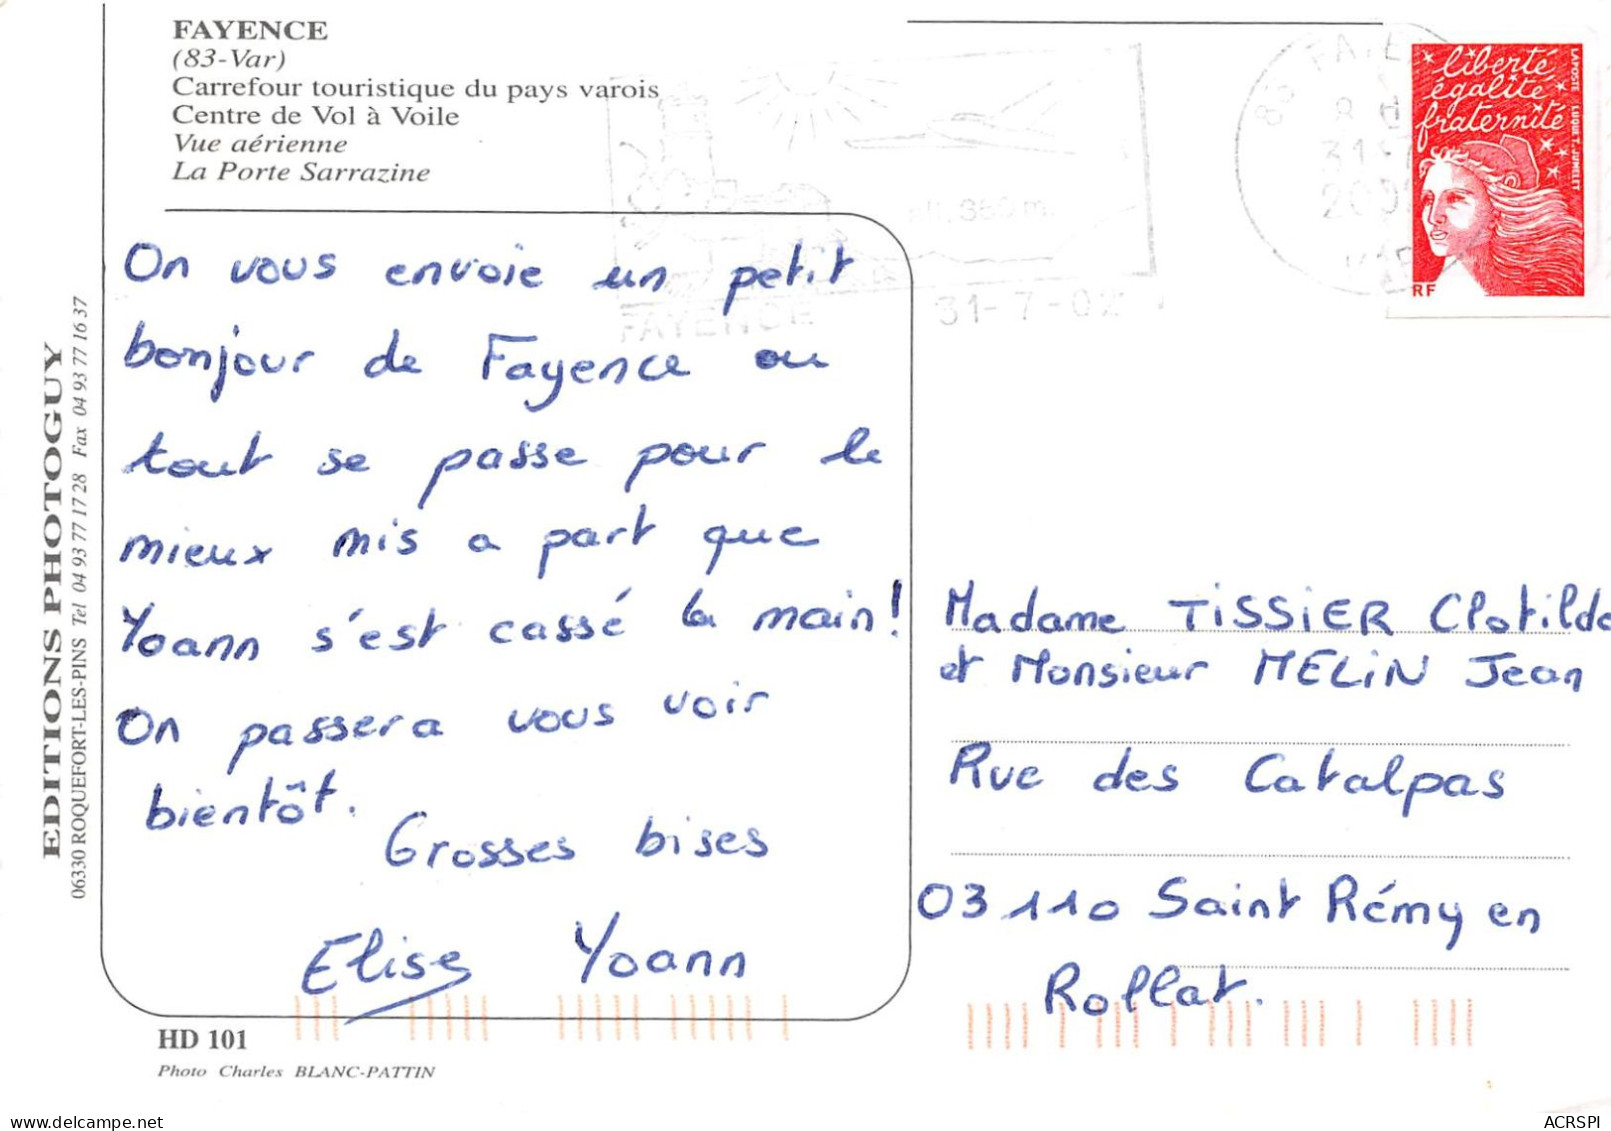 FAYENCE
(83-Var)
Carrefour touristique du pays varois
Centre de Vol à Voile
Vue aérienne
La Porte Sarrazine
EDITIONS PHOTOGUY
06330 ROQUEFORT-LES-PINS Tel 04 93 77 17 28 Fax 04 93 77 16 37
On vous envoie un petit
bonjour de Fayence ou
tout se passe pour le
mieux mis a part que
Yoann s'est cassé la main!
On passera vous voir
bientôt.
Grosses bises
Elise Yoann
HD 101
Photo Charles BLANC-PATTIN
alt. 350 m.
FAYENCE 31-7-02
liberté
égalité
fraternité
LA POSTE LUQUET-JUMELET
RF
Madame TISSIER Clotilde
et Monsieur MELIN Jean
Rue des Catalpas
03110 Saint Rémy en
Rollat.
ACRSPI